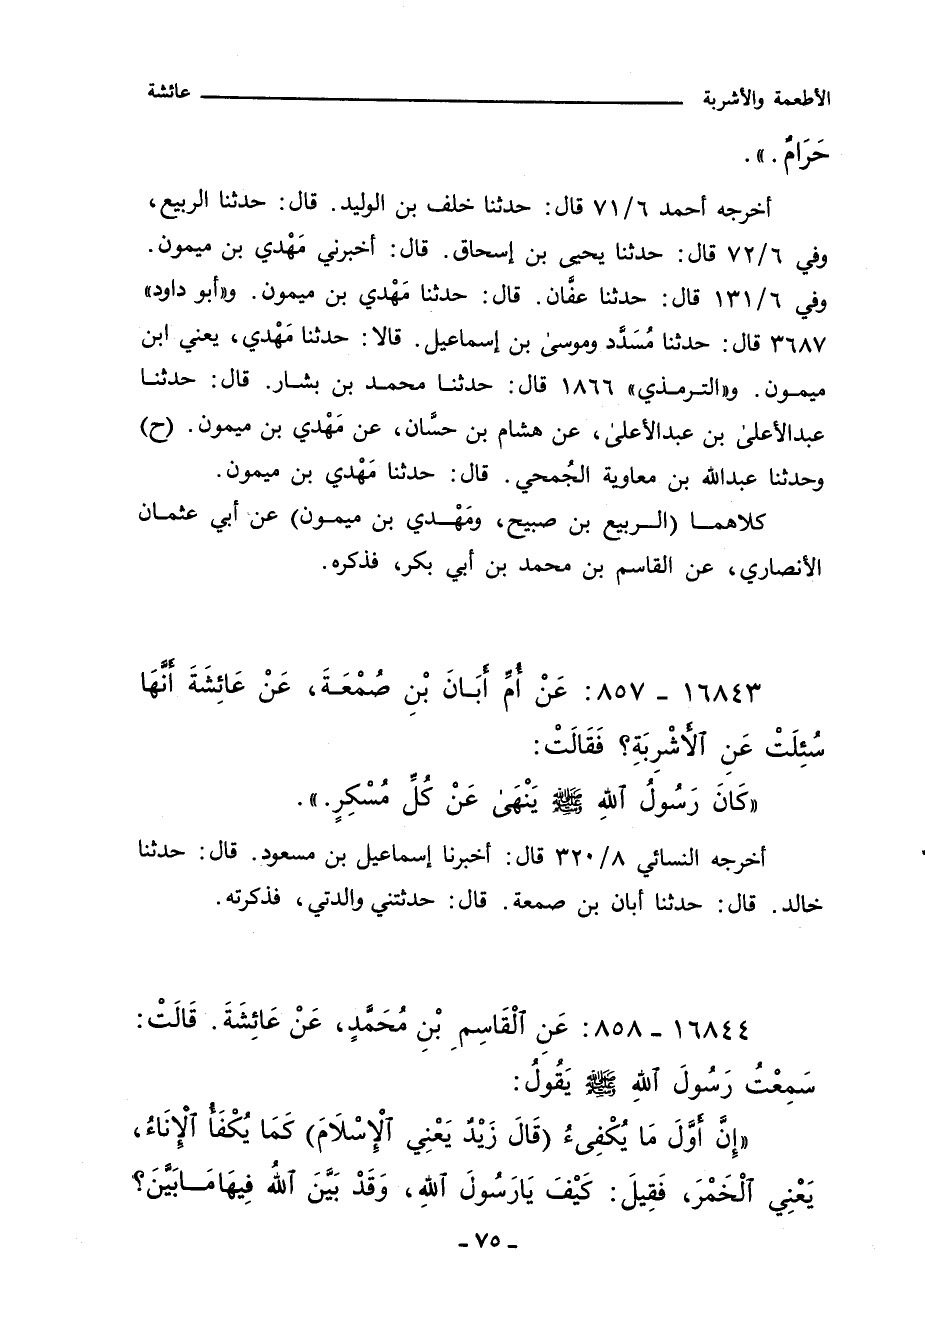 الأطعمة والأشربة ــــــــــــ عائشة
حَرَامٌ.».
أخرجه أحمد ٧١/٦ قال: حدثنا خلف بن الوليد. قال: حدثنا الربيع،
وفي ٧٢/٦ قال: حدثنا يحيى بن إسحاق. قال: أخبرني مَهْدي بن ميمون.
وفي ١٣١/٦ قال: حدثنا عفَّان. قال: حدثنا مَهْدي بن ميمون. و«أبو داود»
٣٦٨٧ قال: حدثنا مُسَدَّد وموسىٰ بن إسماعيل. قالا: حدثنا مَهْدي، يعني ابن
ميمون. و«الترمذي» ١٨٦٦ قال: حدثنا محمد بن بشار. قال: حدثنا
عبدالأعلىٰ بن عبدالأعلىٰ، عن هشام بن حسَّان، عن مَهْدي بن ميمون. (ح)
وحدثنا عبدالله بن معاوية الجُمحي. قال: حدثنا مَهْدي بن ميمون.
كلاهما (الربيع بن صبيح، ومَهْدي بن ميمون) عن أبي عثمان
الأنصاري، عن القاسم بن محمد بن أبي بكر، فذكره.
١٦٨٤٣ ـ ٨٥٧: عَنْ أُمِّ أَبَانَ بْنِ صُمْعَةَ، عَنْ عَائِشَةَ أَنَّهَا
سُئِلَتْ عَنِ ٱلْأَشْرِبَةِ؟ فَقَالَتْ:
«كَانَ رَسُولُ ٱللهِ ﷺ يَنْهَىٰ عَنْ كُلِّ مُسْكِرٍ.».
أخرجه النسائي ٣٢٠/٨ قال: أخبرنا إسماعيل بن مسعود. قال: حدثنا
خالد. قال: حدثنا أبان بن صمعة. قال: حدثتني والدتي، فذكرته.
١٦٨٤٤ ـ ٨٥٨: عَنِ ٱلْقَاسِمِ بْنِ مُحَمَّدٍ، عَنْ عَائِشَةَ. قَالَتْ:
سَمِعْتُ رَسُولَ ٱللهِ ﷺ يَقُولُ:
«إِنَّ أَوَّلَ مَا يُكْفِىءُ (قَالَ زَيْدٌ يَعْنِي ٱلْإِسْلَامَ) كَمَا يُكْفَأُ ٱلْإِنَاءُ،
يَعْنِي ٱلْخَمْرَ، فَقِيلَ: كَيْفَ يَارَسُولَ ٱللهِ، وَقَدْ بَيَّنَ ٱللهُ فِيهَا مَابَيَّنَ؟
ـ ٧٥ ـ